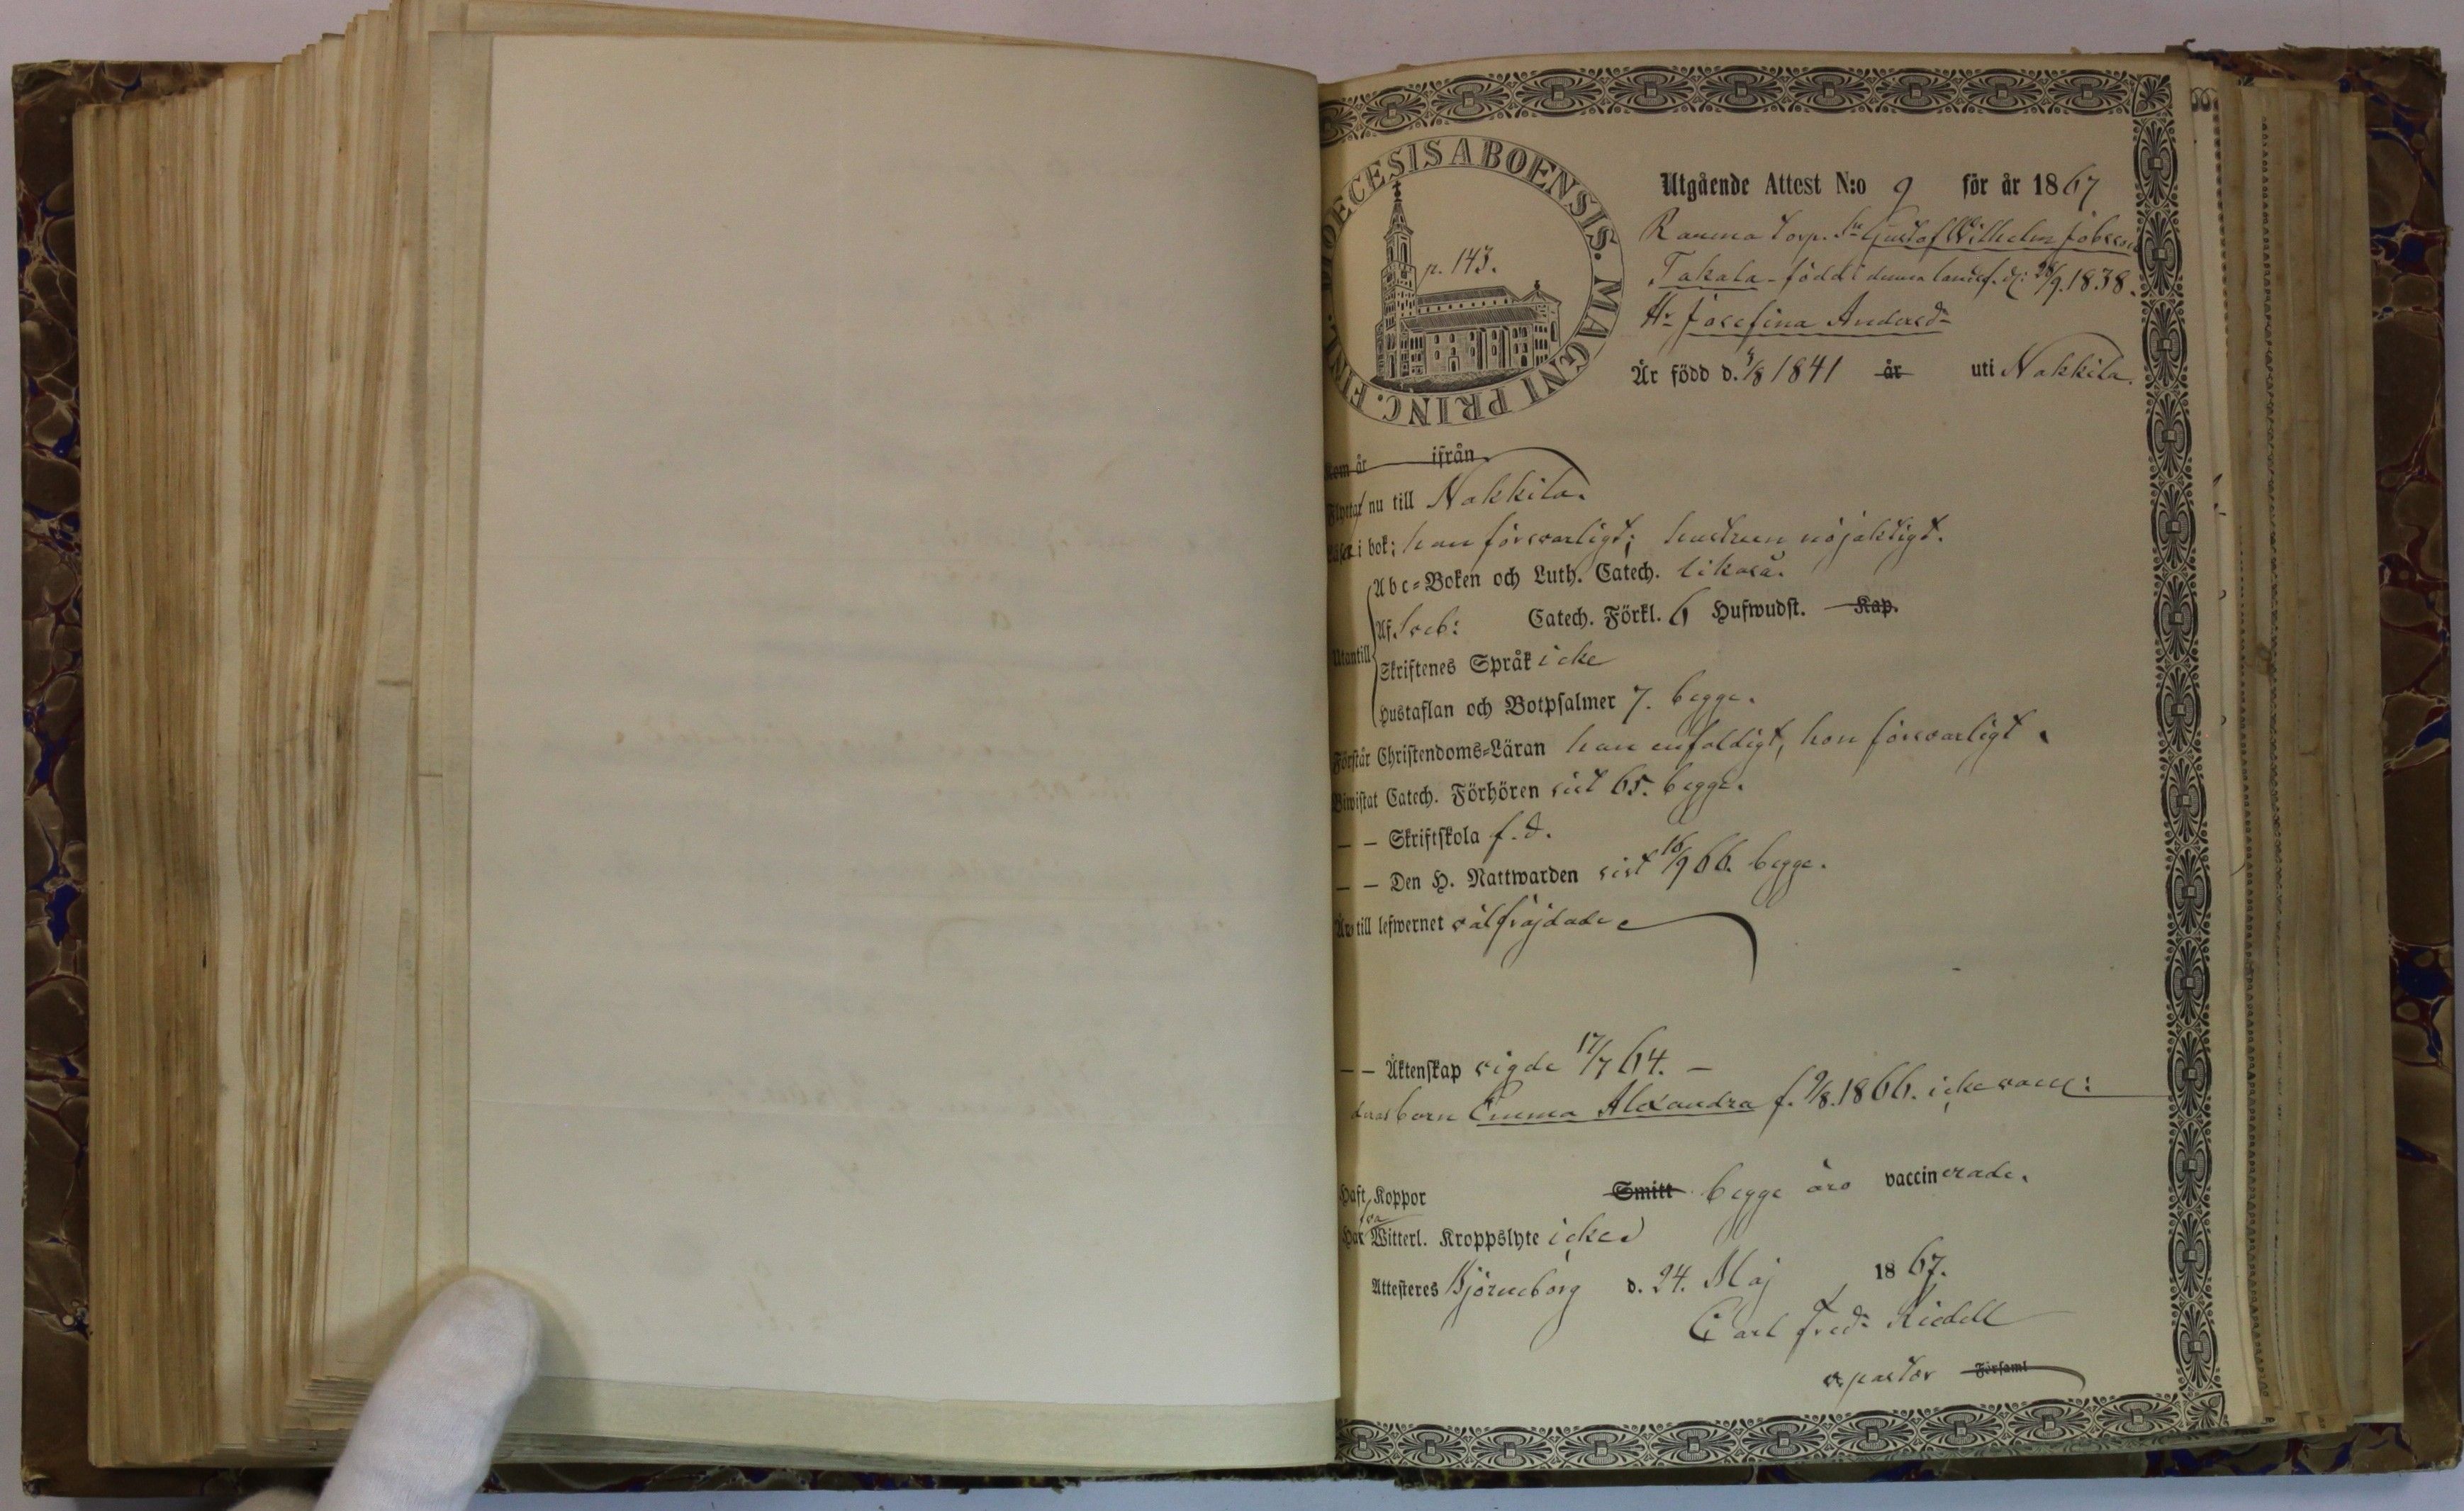 DIOECESIS ABOENSIS. MAGNI PRINC. FINL.
p. 143.
Utgående Attest N:o 9 för år 1867
Torp. Gustaf Wilhelm Jobsson
Takala - född i denna 28/9. 1838.
H:r Josefina Andersd:r
Är född d. 4/8 1841 år uti Nakkila.
Kom år ifrån
Flyttar nu till Nakkila.
Läser i bok: han försvarligt; hustrun nöjaktigt.
Abc-Boken och Luth. Catech. likaså.
Utantill
Af Sveb: Catech. Förkl. 6 Hufwudst. Kap.
Skriftenes Språk icke
Hustaflan och Botpsalmer 7. begge.
Förstår Christendoms-Läran han enfaldigt, hon försvarligt.
Biwistat Catech. Förhören sist 65. begge.
— — Skriftskola f. d.
— — Den H. Nattwarden sist 16/9 66. begge.
Äro till lefwernet välfräjdade
— — Äktenskap vigde 17/7 64. —
deras barn Emma Alexandra f. 9/8. 1866. icke vacc:
Haft Koppor Smitt begge äro vaccinerade.
Witterl. Kroppslyte icke
Attesteres Björneborg d. 24. Maj 1867.
Carl Fred: Riedell
v. pastor Församl